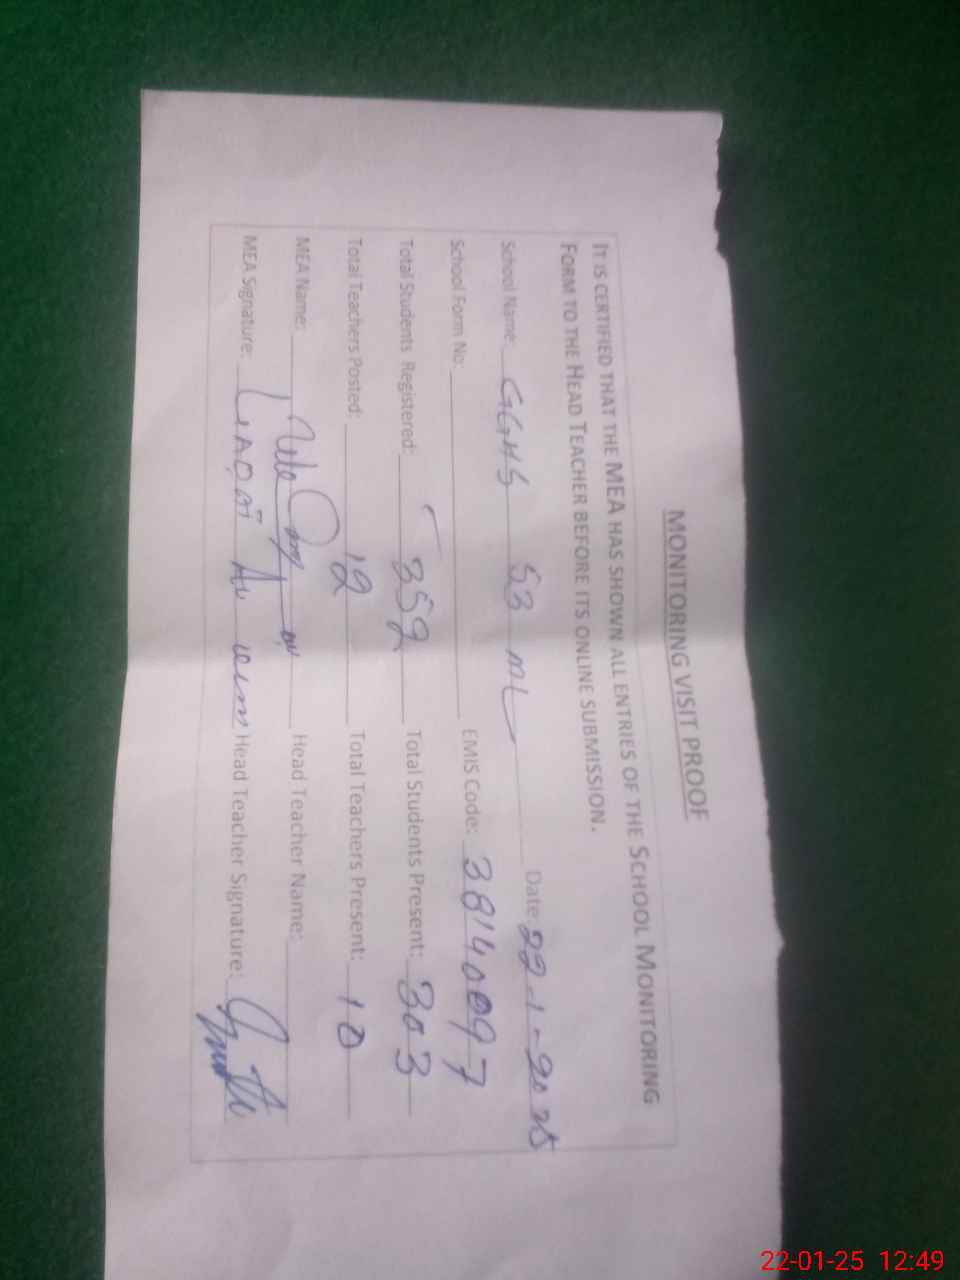 MONITORING VISIT PROOF
IT IS CERTIFIED THAT THE MEA HAS SHOWN ALL ENTRIES OF THE SCHOOL MONITORING
FORM TO THE HEAD TEACHER BEFORE ITS ONLINE SUBMISSION.
School Name: GGHS 53 ML Date: 22-1-2025
School Form No: EMIS Code: 38140097
Total Students Registered: 352 Total Students Present: 303
Total Teachers Posted: 12 Total Teachers Present: 10
MEA Name: Head Teacher Name:
MEA Signature: Head Teacher Signature:
22-01-25 12:49